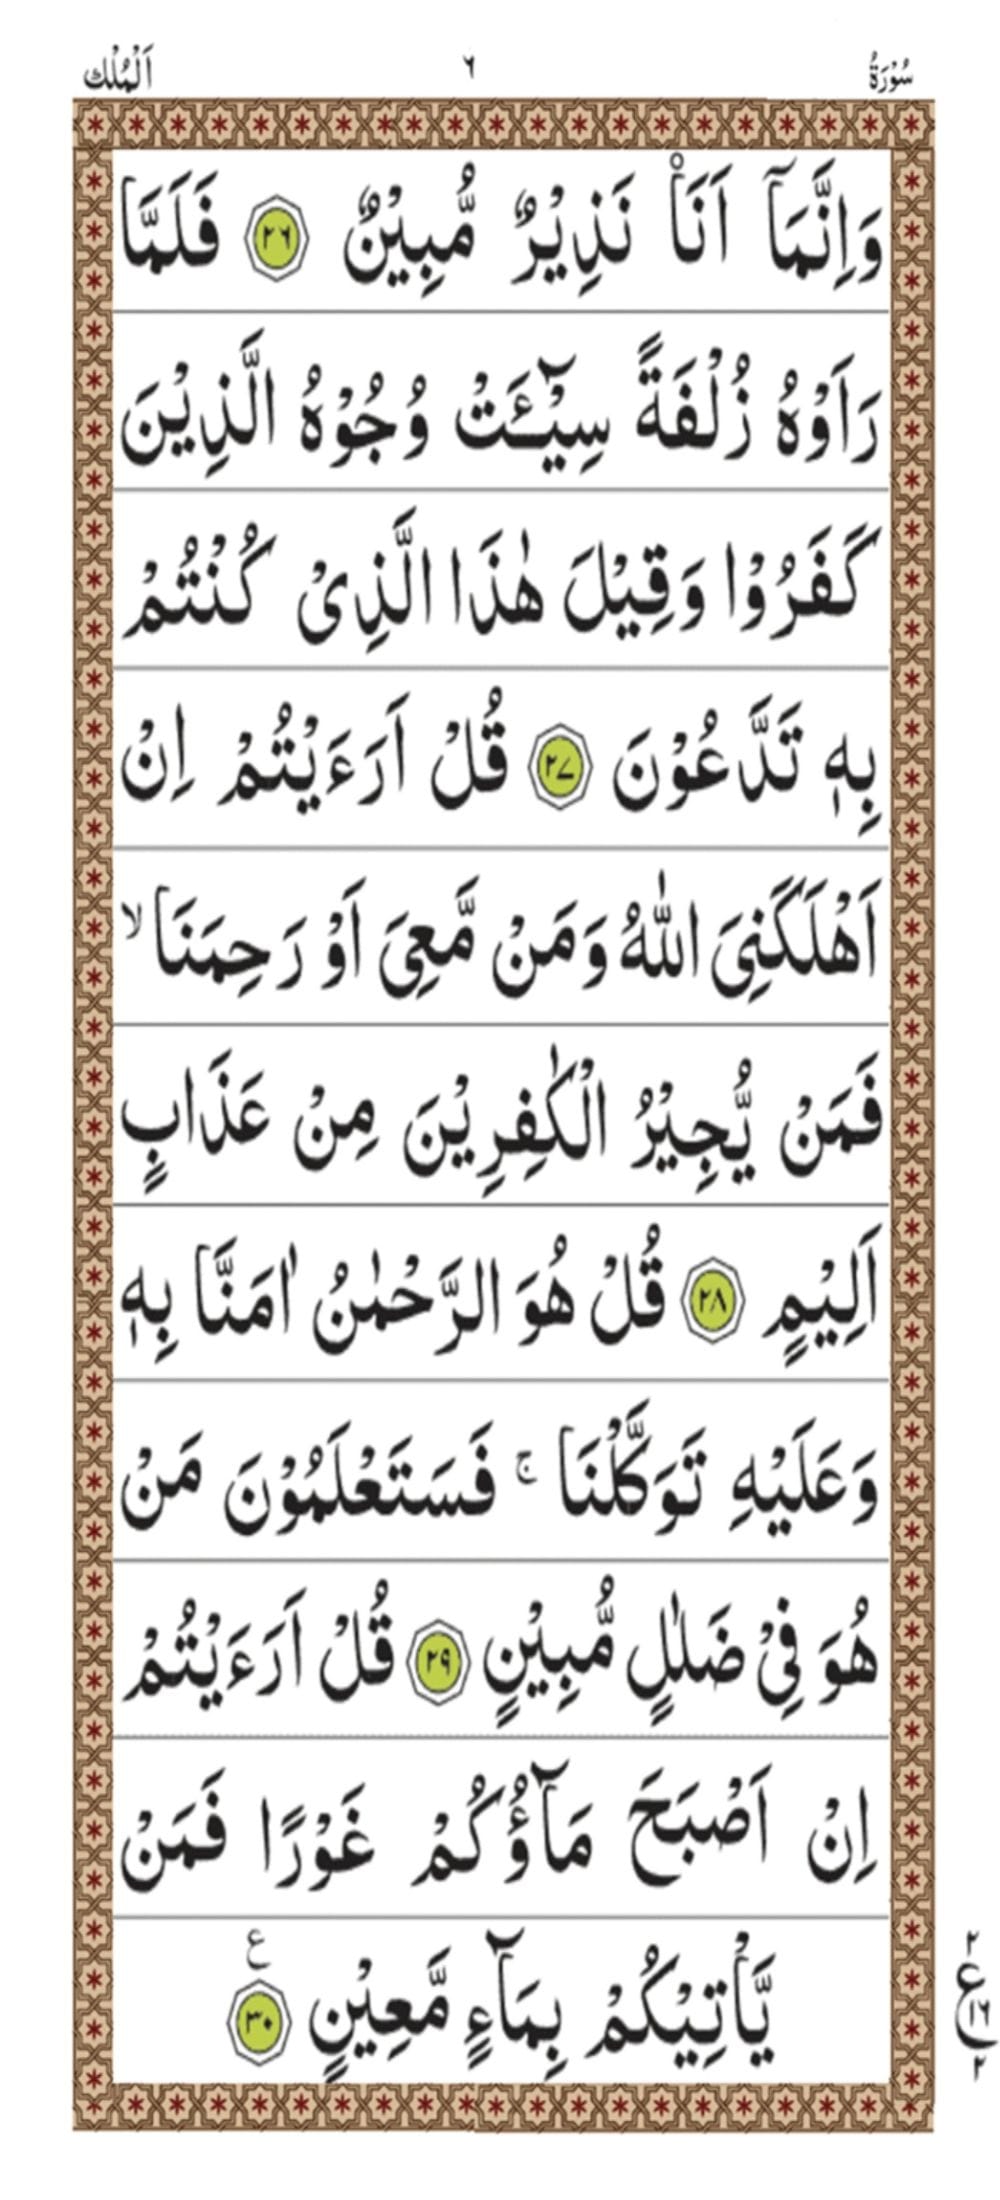 سُوْرَةُ ٦ اَلْمُلْك
وَاِنَّمَاۤ اَنَا۠ نَذِيْرٌ مُّبِيْنٌ ٢٦ فَلَمَّا
رَاَوْهُ زُلْفَةً سِيْٓـَٔتْ وُجُوْهُ الَّذِيْنَ
كَفَرُوْا وَقِيْلَ هٰذَا الَّذِىْ كُنْتُمْ
بِهٖ تَدَّعُوْنَ ٢٧ قُلْ اَرَءَيْتُمْ اِنْ
اَهْلَكَنِىَ اللّٰهُ وَمَنْ مَّعِىَ اَوْ رَحِمَنَا ۙ
فَمَنْ يُّجِيْرُ الْكٰفِرِيْنَ مِنْ عَذَابٍ
اَلِيْمٍ ٢٨ قُلْ هُوَ الرَّحْمٰنُ اٰمَنَّا بِهٖ
وَعَلَيْهِ تَوَكَّلْنَا ۚ فَسَتَعْلَمُوْنَ مَنْ
هُوَ فِىْ ضَلٰلٍ مُّبِيْنٍ ٢٩ قُلْ اَرَءَيْتُمْ
اِنْ اَصْبَحَ مَآؤُكُمْ غَوْرًا فَمَنْ
يَّاْتِيْكُمْ بِمَآءٍ مَّعِيْنٍ ٣٠ ع
٢
ع ١٦
٢